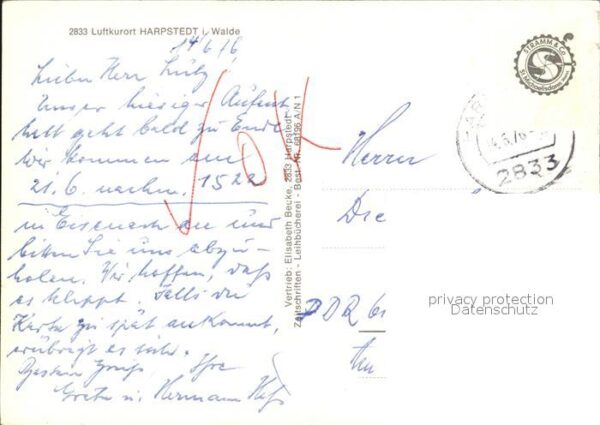 2833 Luftkurort HARPSTEDT i. Walde
14/6/76
Lieber Herr Lutz,
Unser hiesiger Aufent
halt geht bald zu Ende
Wir kommen am
21.6. nachm. 1522
in Eisenach an und
bitten Sie uns abzu-
holen. Wir hoffen, daß
es klappt. Falls die
Karte zu spät ankommt,
erübrigt es sich.
Besten Gruß, Ihre
Grete u. Hermann
OK
Vertrieb: Elisabeth Becke, 2833 Harpstedt
Zeitschriften - Leihbücherei - Best.-Nr. 68196 A/N 1
STRAMM & Co.
St. Michaelisdonn
2833
Herrn
DDR
privacy protection
Datenschutz